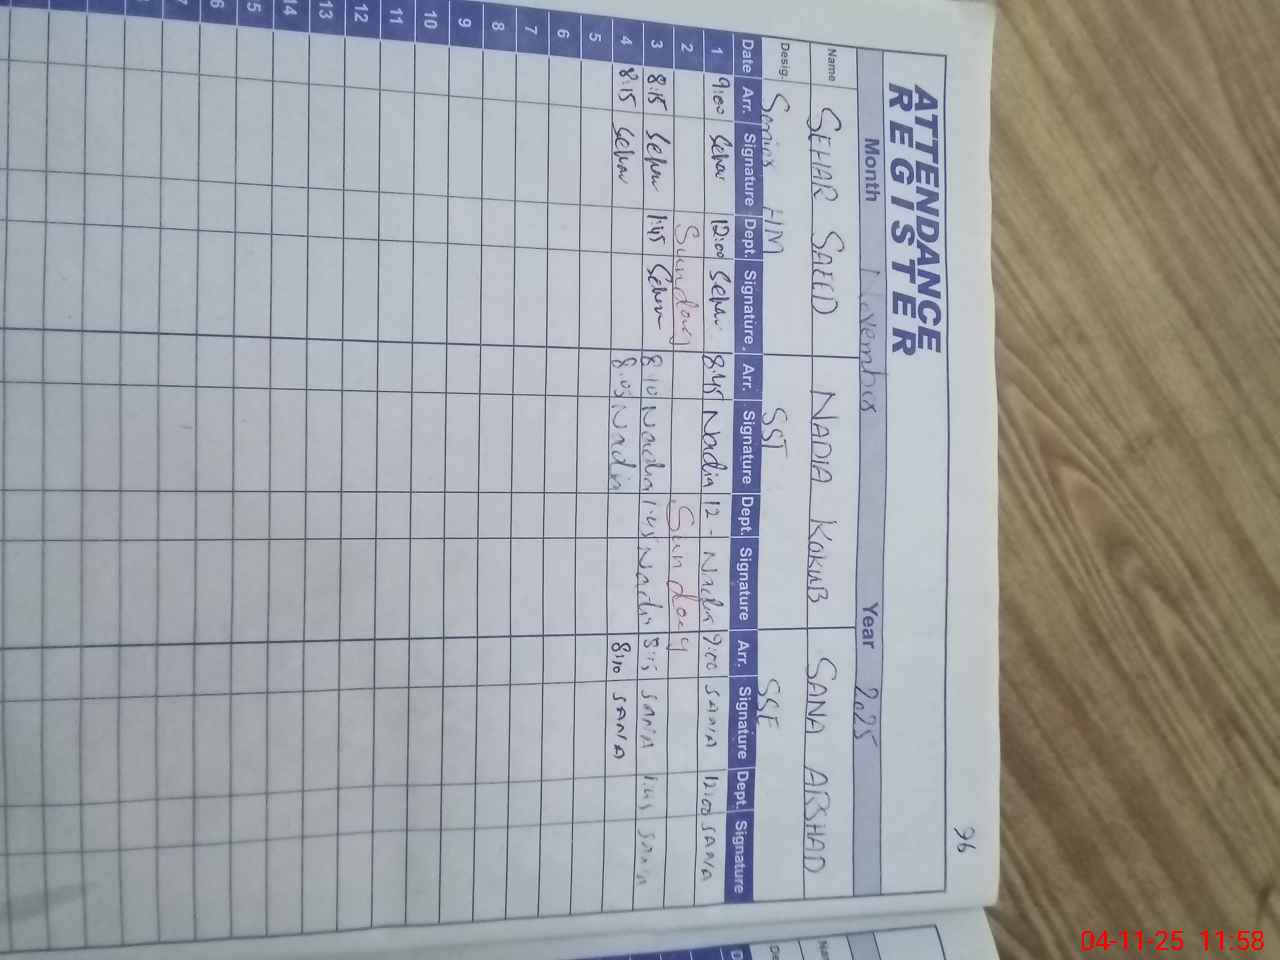 96
ATTENDANCE
REGISTER
Month November Year 2025
Name SEHAR SAEED NADIA KOKUB SANA ARSHAD
Desig. Senior HM SST SSE
Date Arr. Signature Dept. Signature Arr. Signature Dept. Signature Arr. Signature Dept. Signature
1 9:00 Sehar 12:00 Sehar 8:45 Nadia 12 - Nadia 9:00 SANIA 12:00 SANIA
2 Sunday Sunday
3 8:15 Sehar 1:45 Sehar 8:10 Nadia 1:45 Nadia 8:15 SANIA 1:45 SANIA
4 8:15 Sehar 8:05 Nadia 8:10 SANIA
5
6
7
8
9
10
11
12
13
14
04-11-25 11:58